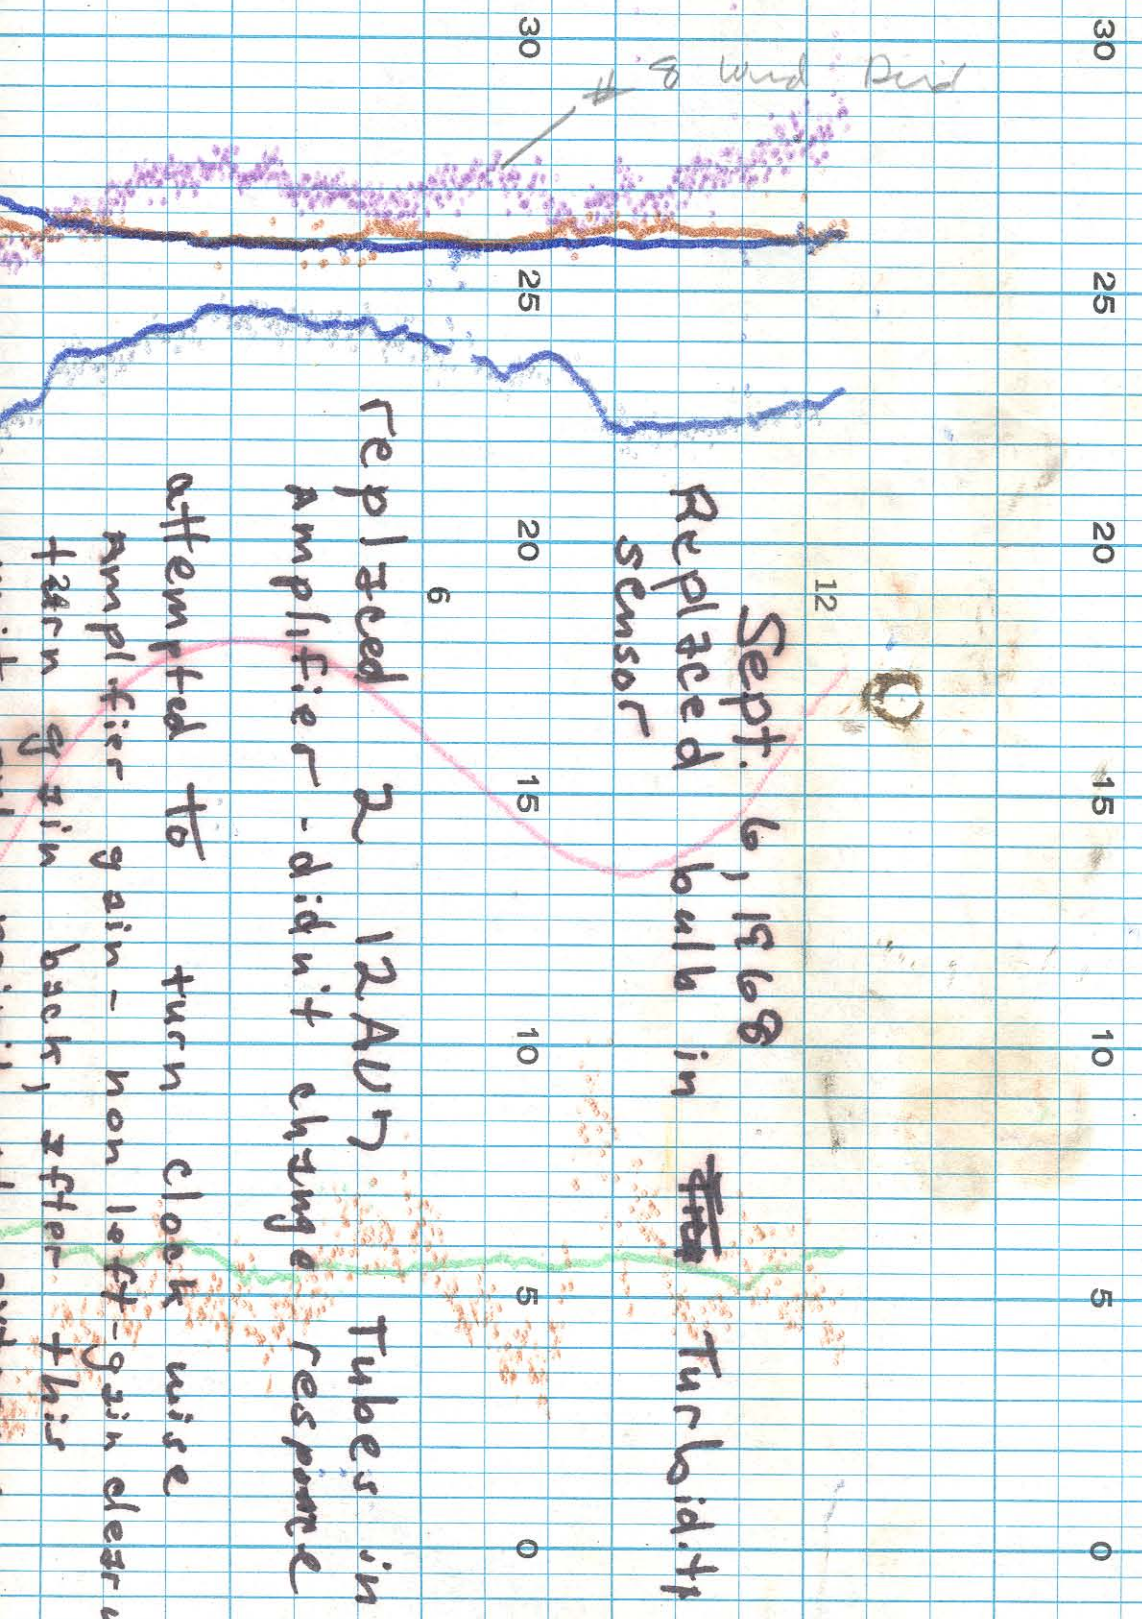 30 25 20 15 10 5 0
# 8 Wind
12
Sept. 6, 1968
Replaced bulb in Turbidity
sensor
30 25 20 15 10 5 0
6
replaced 2 12AU7 Tubes in
Amplifier - didn't change response
attempted to turn clock wise
Amplifier gain - non left - gain
turn gain back, after this